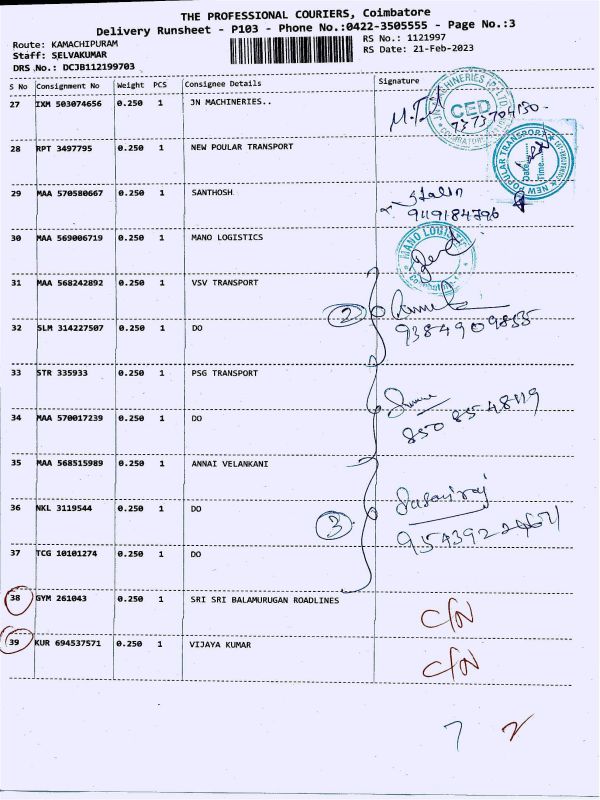 THE PROFESSIONAL COURIERS, Coimbatore
Delivery Runsheet - P103 - Phone No.:0422-3505555 - Page No.:3
Route: KAMACHIPURAM
RS No.: 1121997
Staff: SELVAKUMAR
RS Date: 21-Feb-2023
DRS No.: DCJB112199703
S No Consignment No Weight PCS Consignee Details Signature
27 IXM 503074656 0.250 1 JN MACHINERIES..
CED
7373704130
28 RPT 3497795 0.250 1 NEW POULAR TRANSPORT
NEW POPULAR TRANSPORT
Date
Time
29 MAA 570580667 0.250 1 SANTHOSH
Stalin
30 MAA 569006719 0.250 1 MANO LOGISTICS
MANO LOGISTICS
31 MAA 568242892 0.250 1 VSV TRANSPORT
2
32 SLM 314227507 0.250 1 DO
9384909855
33 STR 335933 0.250 1 PSG TRANSPORT
34 MAA 570017239 0.250 1 DO
850 85 48119
35 MAA 568515989 0.250 1 ANNAI VELANKANI
36 NKL 3119544 0.250 1 DO
3
37 TCG 10101274 0.250 1 DO
38 GYM 261043 0.250 1 SRI SRI BALAMURUGAN ROADLINES
C/N
39 KUR 694537571 0.250 1 VIJAYA KUMAR
C/N
7 2